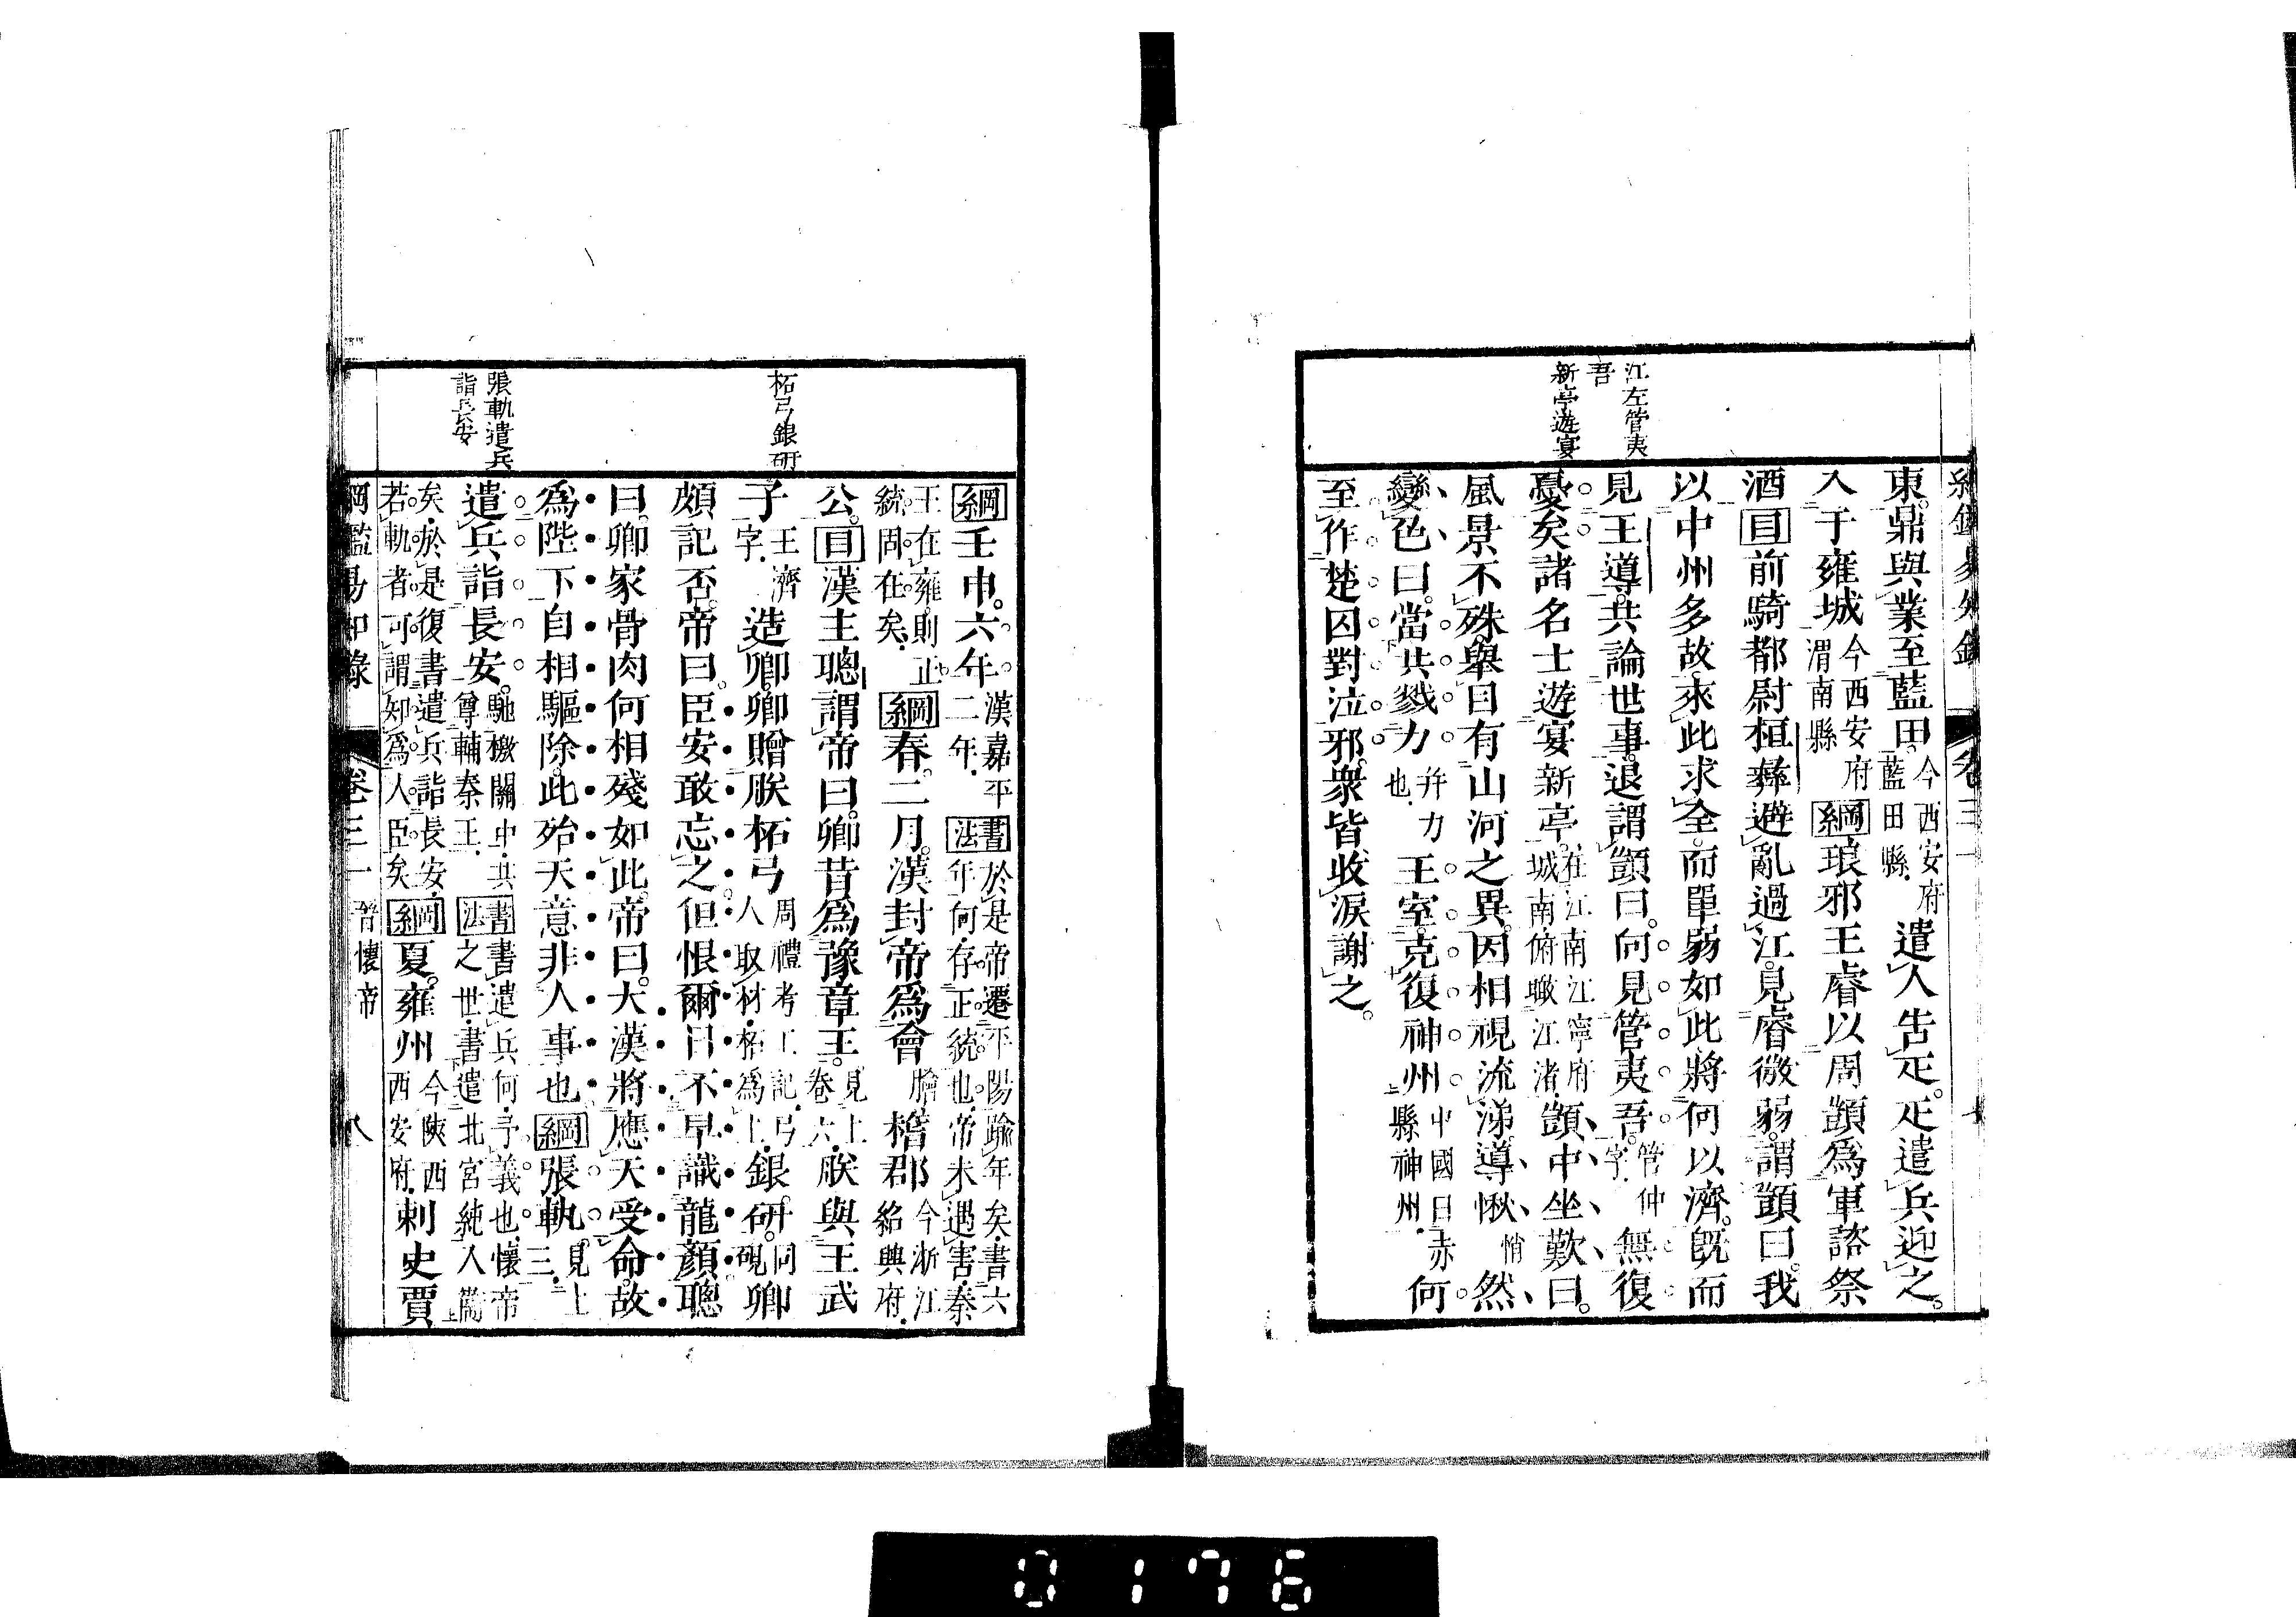 江左管夷
吾
新亭遊宴
東。鼎與業至藍田。今西安府藍田縣。遣人告疋。疋遣兵迎之。
入于雍城今西安府渭南縣綱琅邪王睿以周顗爲軍諮祭
酒目前騎都尉桓彝避亂過江。見睿微弱。謂顗曰。我
以中州多故。來此求全。而單弱如此。將何以濟。旣而
見王導。共論世事。退謂顗曰。向見管夷吾。管仲字。無復
憂矣。諸名士遊宴新亭。在江南江寧府城南。俯瞰江渚。顗中坐歎曰。
風景不殊。舉目有山河之異。因相視流涕。導愀悄然
變色曰。當共戮力幷力也。王室。克復神州中國曰赤縣神州。何
至作楚囚對泣邪。衆皆收淚謝之。
柘弓銀研
張軌遣兵
詣長安
綱壬申。六年。漢嘉平二年。書法於是帝遷平陽踰年矣。書六年何。存正統也。帝未遇害。秦
王在雍。則正統固在矣。綱春。二月。漢封帝爲會膾稽郡今浙江紹興府。
公。目漢主聰謂帝曰。卿昔爲豫章王。見上卷六。朕與王武
子王濟字。造卿。卿贈朕柘弓周禮考工記。弓人取材。柘爲上。銀研。同硯卿
頗記否。帝曰。臣安敢忘之。但恨爾日不早識龍顏。聰
曰。卿家骨肉何相殘如此。帝曰。大漢將應天受命。故
爲陛下自相驅除。此殆天意。非人事也綱張軌。見上三。
遣兵詣長安。馳檄關中。共尊輔秦王。書法書遣兵何。予義也。懷帝之世。書遣北宮純入衞
矣。於是復書遣兵詣長安。若軌者。可謂知爲人臣矣綱夏。雍州今陝西西安府。刺史賈
綱鑑易知錄 卷三一 晉懷帝 八